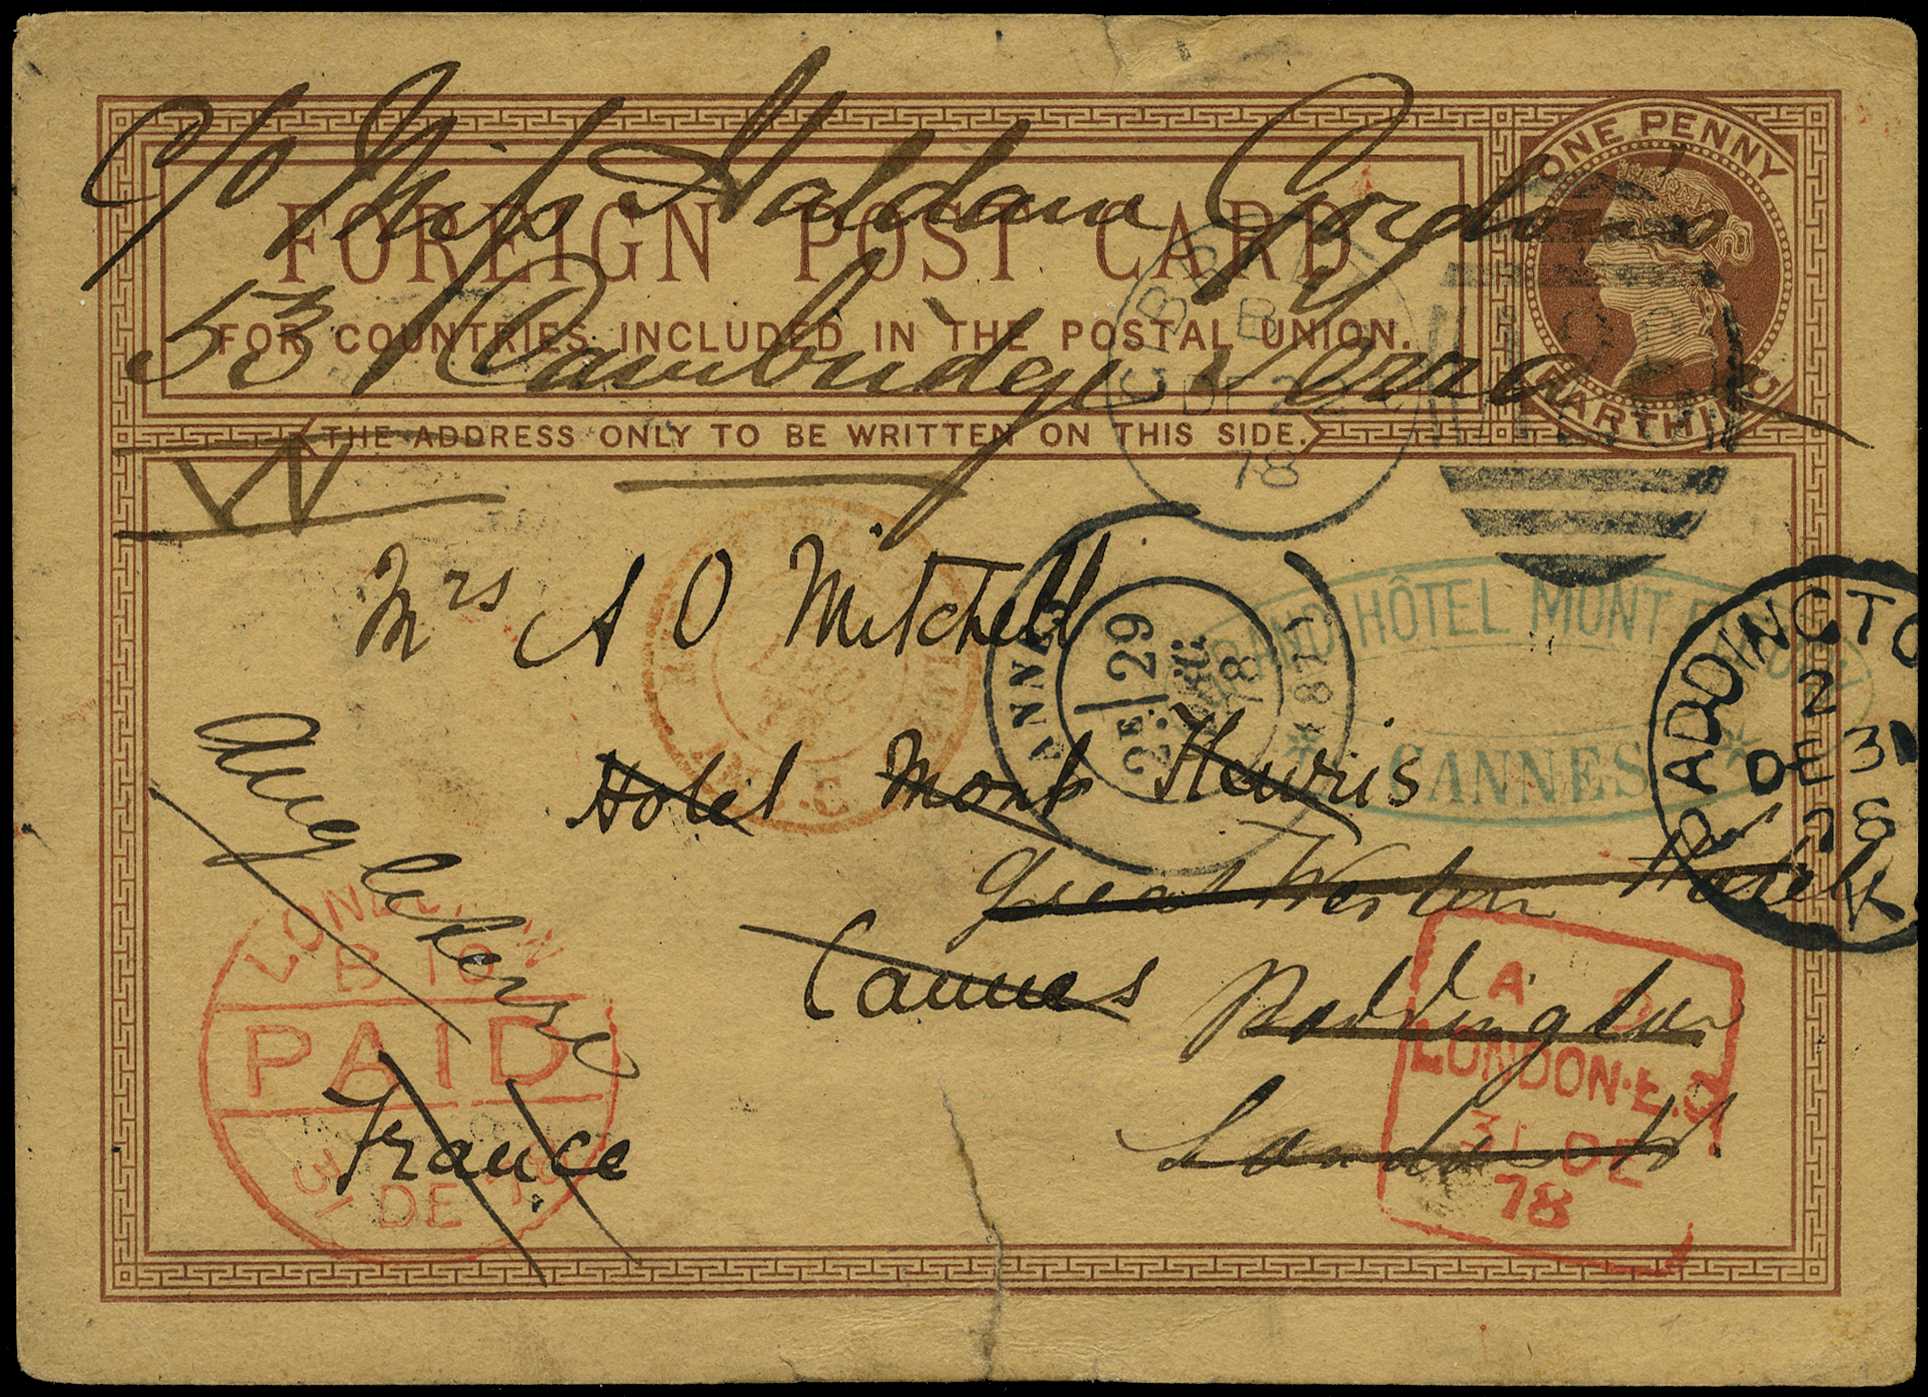 c/o Miss Haldane Gordon
ONE PENNY
FARTHING
FOREIGN POST CARD
53 Cambridge Terrace
FOR COUNTRIES INCLUDED IN THE POSTAL UNION.
THE ADDRESS ONLY TO BE WRITTEN ON THIS SIDE.
W
B
DE 2
78
Mrs A O Mitchell
GRAND HÔTEL MONT FLEURY
CANNES
CANNES
2E 29
DEC.
78
PADDINGTO
2
DE 31
78
Hotel Mont Fleuris
Great Western Hotel
Cannes
Paddington
London W
Angleterre
France
B 10
PAID
31 DE 78
A D
LONDON·E.C
31 DE
78